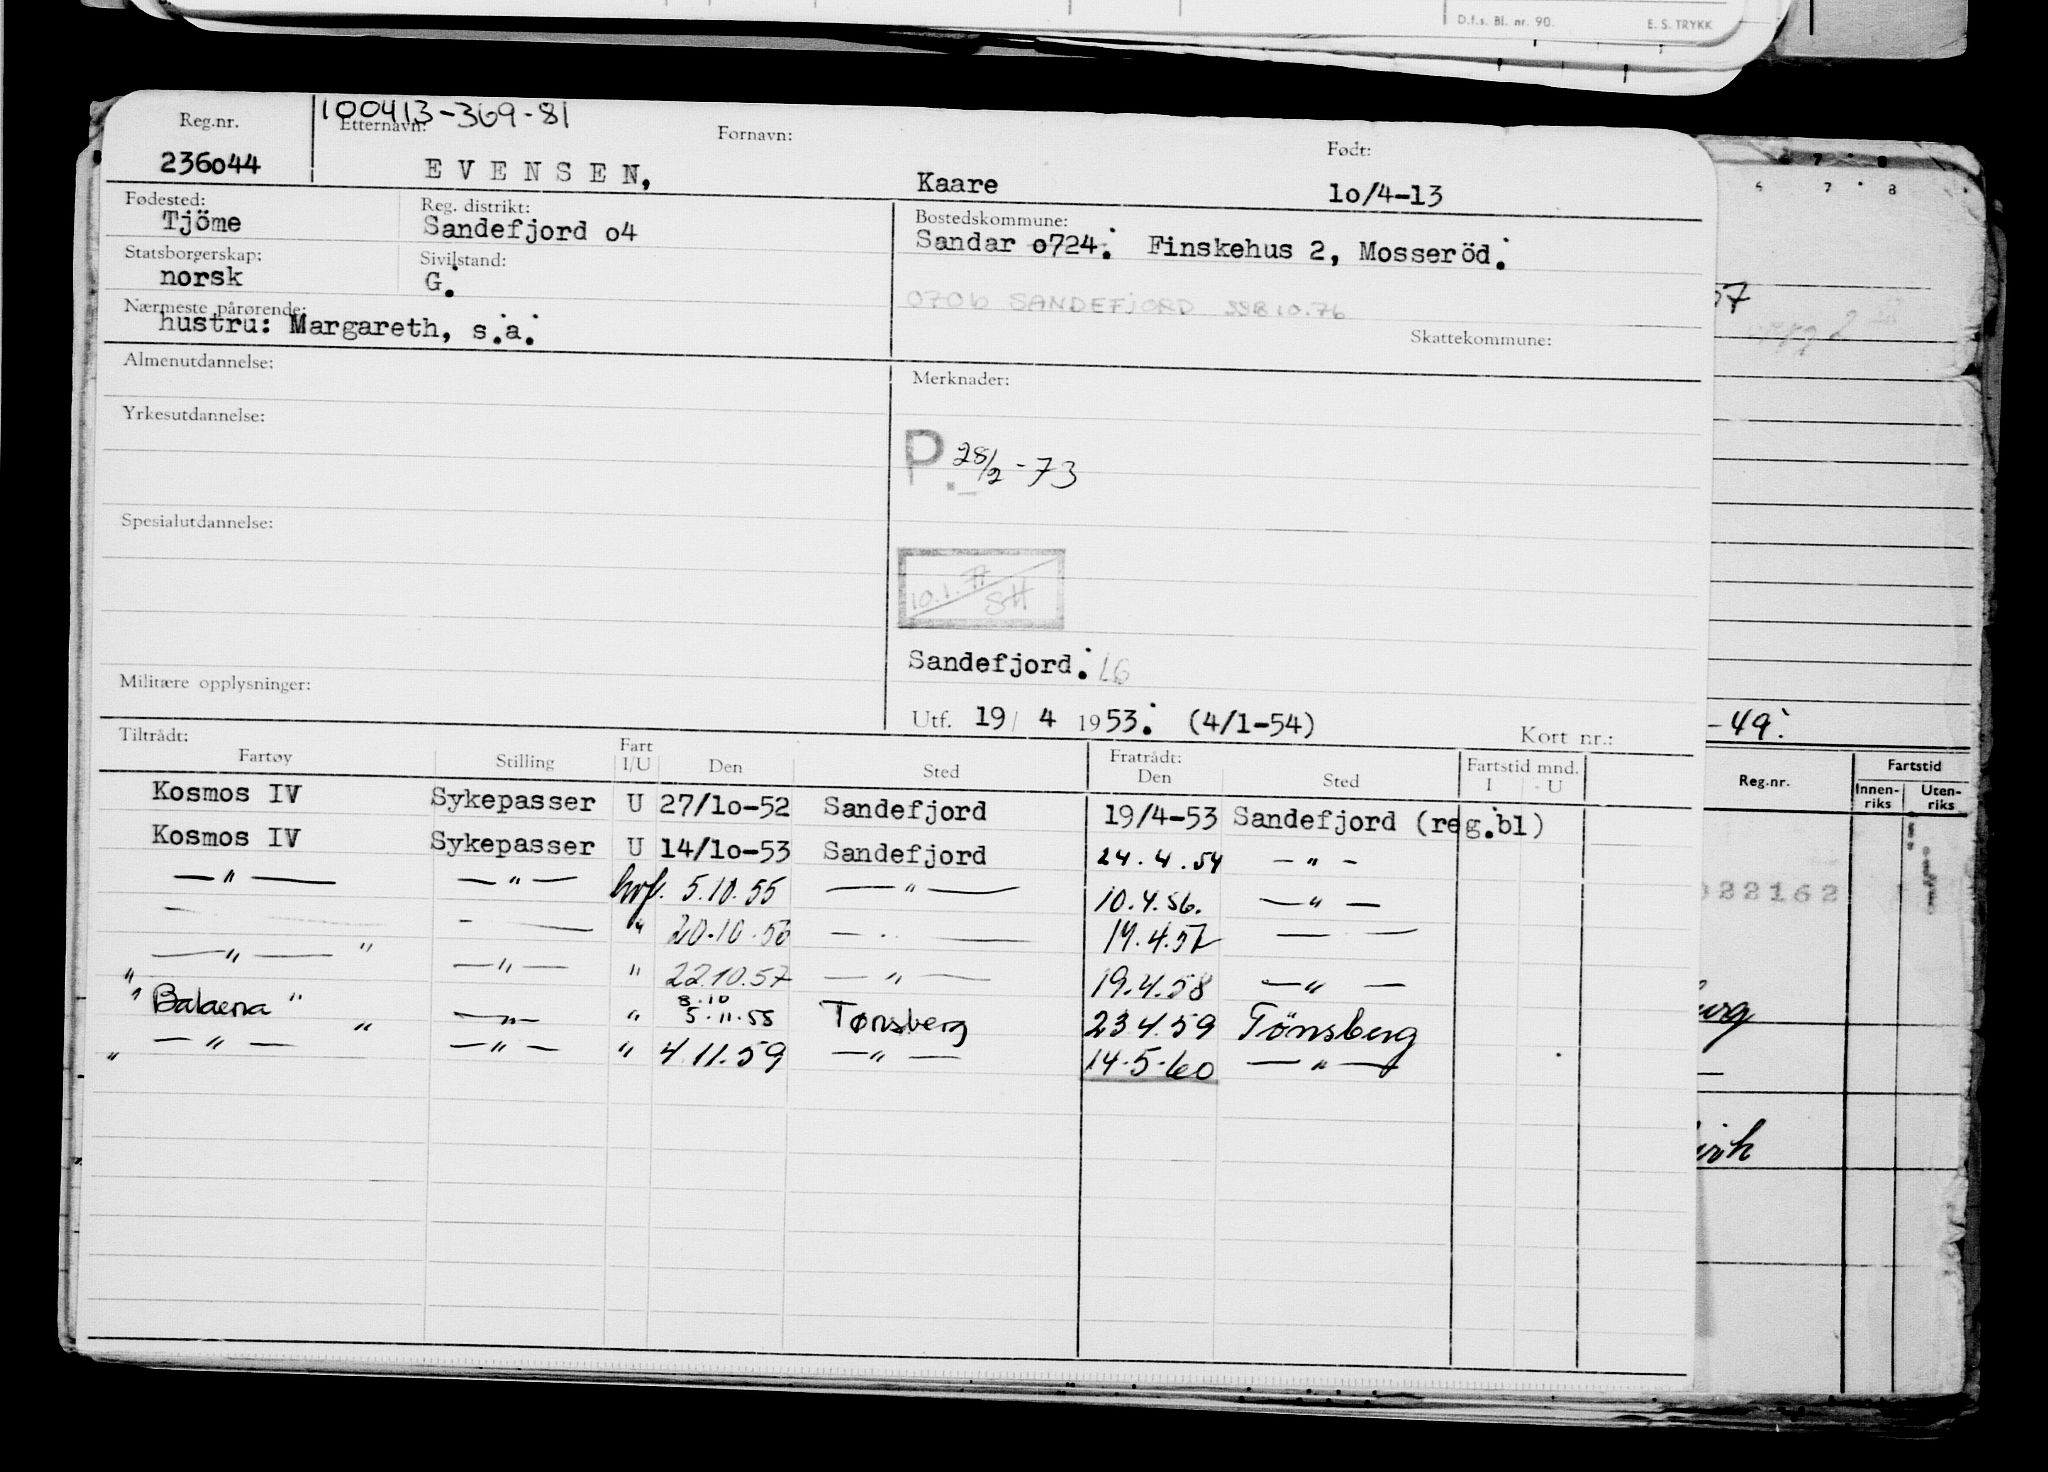 D.f.s. Bl. nr. 90. E. S. TRYKK
100413-369-81
Reg.nr. Etternavn: Fornavn: Født:
236o44 E V E N S E N, Kaare 1o/4-13
Fødested: Reg. distrikt: Bostedskommune:
Tjöme Sandefjord o4 Sandar o724. Finskehus 2, Mosseröd.
Statsborgerskap: Sivilstand:
norsk G.
0706 SANDEFJORD SSB 10.76
Nærmeste pårørende: Skattekommune:
hustru: Margareth, s.a.
Almenutdannelse: Merknader:
Yrkesutdannelse:
P. 28/2-73
Spesialutdannelse:
10.1.77 SH
Sandefjord. LG
Militære opplysninger:
Utf. 19/ 4 1953. (4/1-54) Kort nr.:
Tiltrådt: Fratrådt:
Fartøy Stilling Fart I/U Den Sted Den Sted Fartstid mnd. I - U
Kosmos IV Sykepasser U 27/1o-52 Sandefjord 19/4-53 Sandefjord (reg.bl)
Kosmos IV Sykepasser U 14/1o-53 Sandefjord 24.4.54 — " —
— " — — " — hvf. 5.10.55 — " — 10.4.56. — " —
— — " 20.10.56 — " — 14.4.57 — —
— " — " — " — " 22.10.57 — " — 19.4.58 — " —
" Balaena " — " — " 8.10 5.11.58 Tønsberg 23.4.59 Tönsberg
" — " — " — " — " 4.11.59 — " — 14.5.60 — " —
6 7 8
57
-49.
Reg.nr. Fartstid
Innen-riks Uten-riks
022162